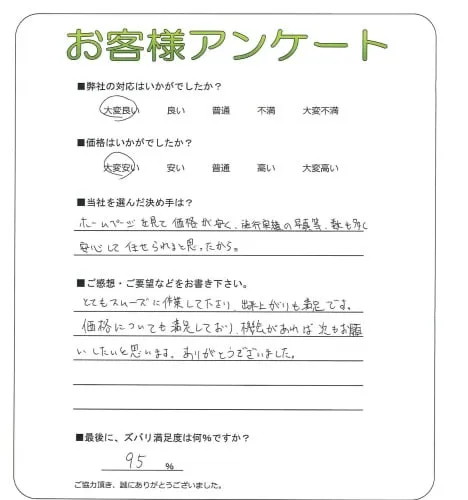 お客様アンケート
■弊社の対応はいかがでしたか？
大変良い 良い 普通 不満 大変不満
■価格はいかがでしたか？
大変安い 安い 普通 高い 大変高い
■当社を選んだ決め手は？
ホームページを見て価格が安く、施行実績の写真等、数も多く
安心して任せられると思ったから。
■ご感想・ご要望などをお書き下さい。
とてもスムーズに作業して下さり、出来上がりも満足です。
価格についても満足しており、機会があれば次もお願
いしたいと思います。ありがとうございました。
■最後に、ズバリ満足度は何%ですか？
95 %
ご協力頂き、誠にありがとうございました。